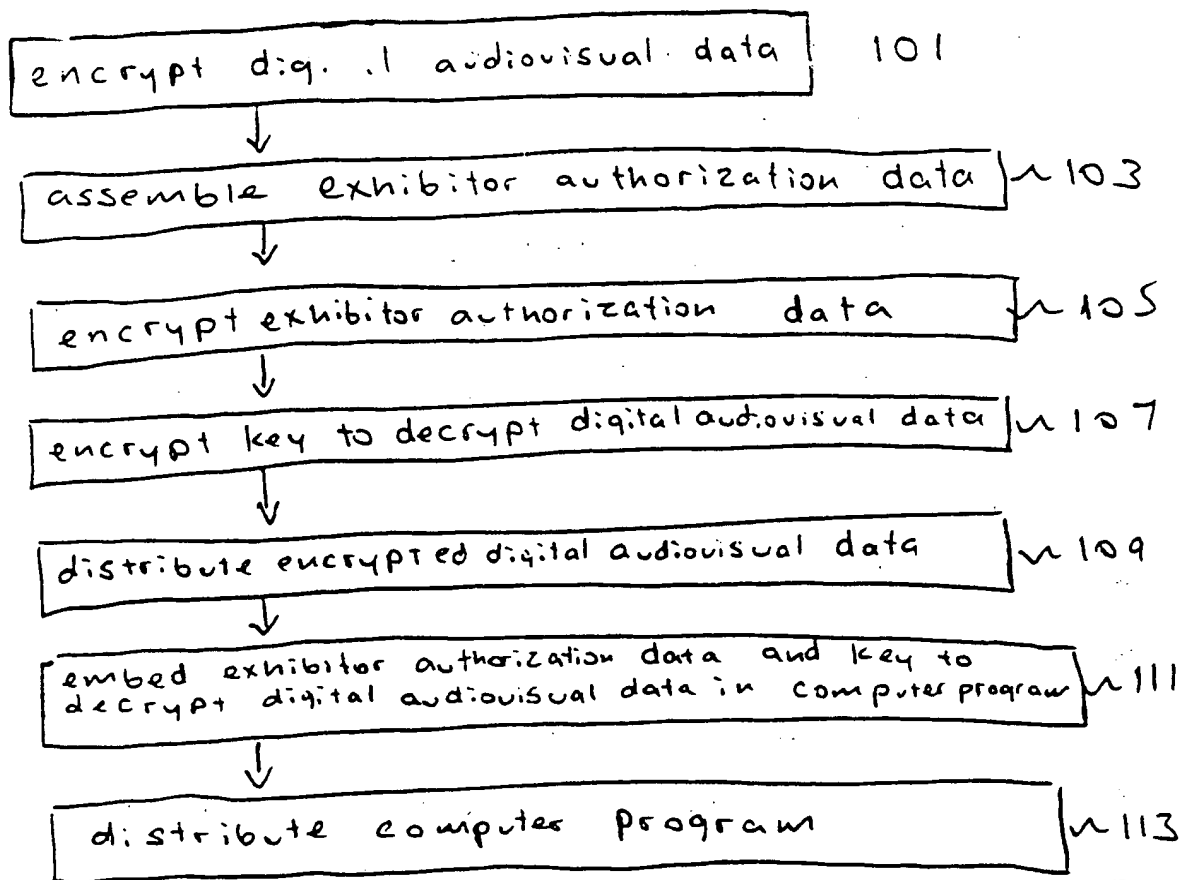 encrypt audiovisual data 101
assemble exhibitor authorization data 103
encrypt exhibitor authorization data 105
encrypt key to decrypt digital audiovisual data 107
distribute encrypted digital audiovisual data 109
embed exhibitor authorization data and key to
decrypt digital audiovisual data in computer program 111
distribute computer program 113